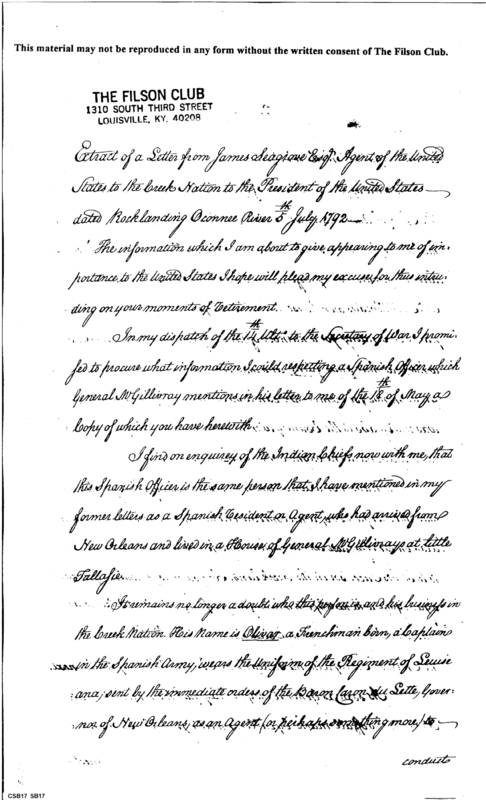 This material may not be reproduced in any form without the written consent of The Filson Club.
THE FILSON CLUB
1310 SOUTH THIRD STREET
LOUISVILLE, KY. 40208
Extract of a Letter from James Seagrove Esqr. Agent of the United
States to the Creek Nation to the President of the United States
dated Rocklanding Oconnee River 5th July 1792
The information which I am about to give, appearing to me of im-
portance to the United States I hope will plead my excuse for thus intru-
ding on your moments of Retirement.
In my dispatch of the 14th Ulto. to the Secretary of War I promi-
sed to procure what information I could respecting a Spanish Officer which
General McGillivray mentions in his letter to me of the 18th of May a
Copy of which you have herewith
I find on enquirey of the Indian Chiefs now with me, that
this Spanish Officer is the same person that I have mentioned in my
former letters as a Spanish Resident or Agent, who had arrived from
New Orleans and lived in a House of General McGillivrays at little
Tallasie
It remains no longer a doubt who this person is, and his business in
the Creek Nation. His name is Olivar, a Frenchman born, a Captain
in the Spanish Army, wears the Uniform of the Regiment of Louisi
ana, sent by the immediate orders of the Baron Caron du Lette, Gover-
nor of New Orleans, as an Agent (or perhaps something more) to
conducts
CSB17 SB17